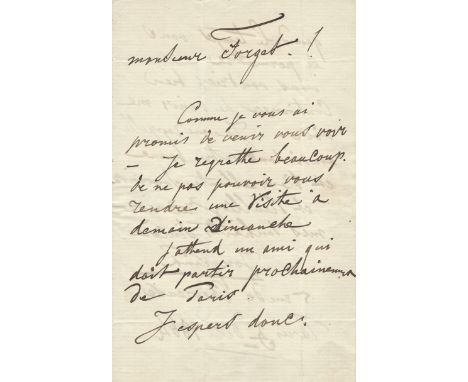 monsieur Forget. !
Comme je vous ai
promis de venir vous voir
– Je regrethe beaucoup.
de ne pas pouvoir vous
rendre une Visite a
demain Dimanche
J'attend un ami qui
doit partir prochainement
de Paris
J'espers donc.